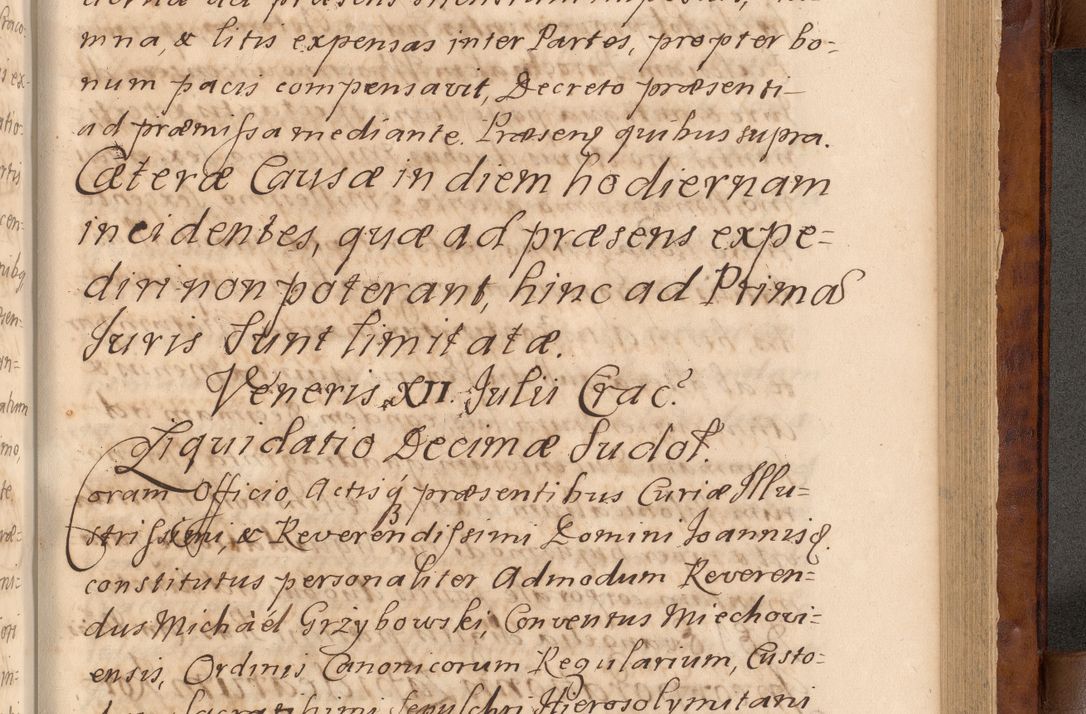 mna, & litis expensas inter Partes, propter bo=
num pacis compensavit, Decreto præsenti
ad præmissa mediante. Præsen̄ quibus supra.
Cæteræ Causæ in diem hodiernam
incidentes, quæ ad præsens expe=
diri non poterant, hinc ad Primas
Juris Sunt limitatæ.
Veneris XII. Julii Crac.
Liquidatio Decimæ Sudoł.
Coram Officio, Actisq́ præsentibus Curiæ Illu=
strissimi, & Reverendissimi Domini Joannis &.
constitutus personaliter Admodum Reveren=
dus Michäel Grzybowski, Conventus Miechovi=
ensis, Ordinis Canonicorum Regularium, Custo=
Sacratissimi Sepulchri Hierosolymitani